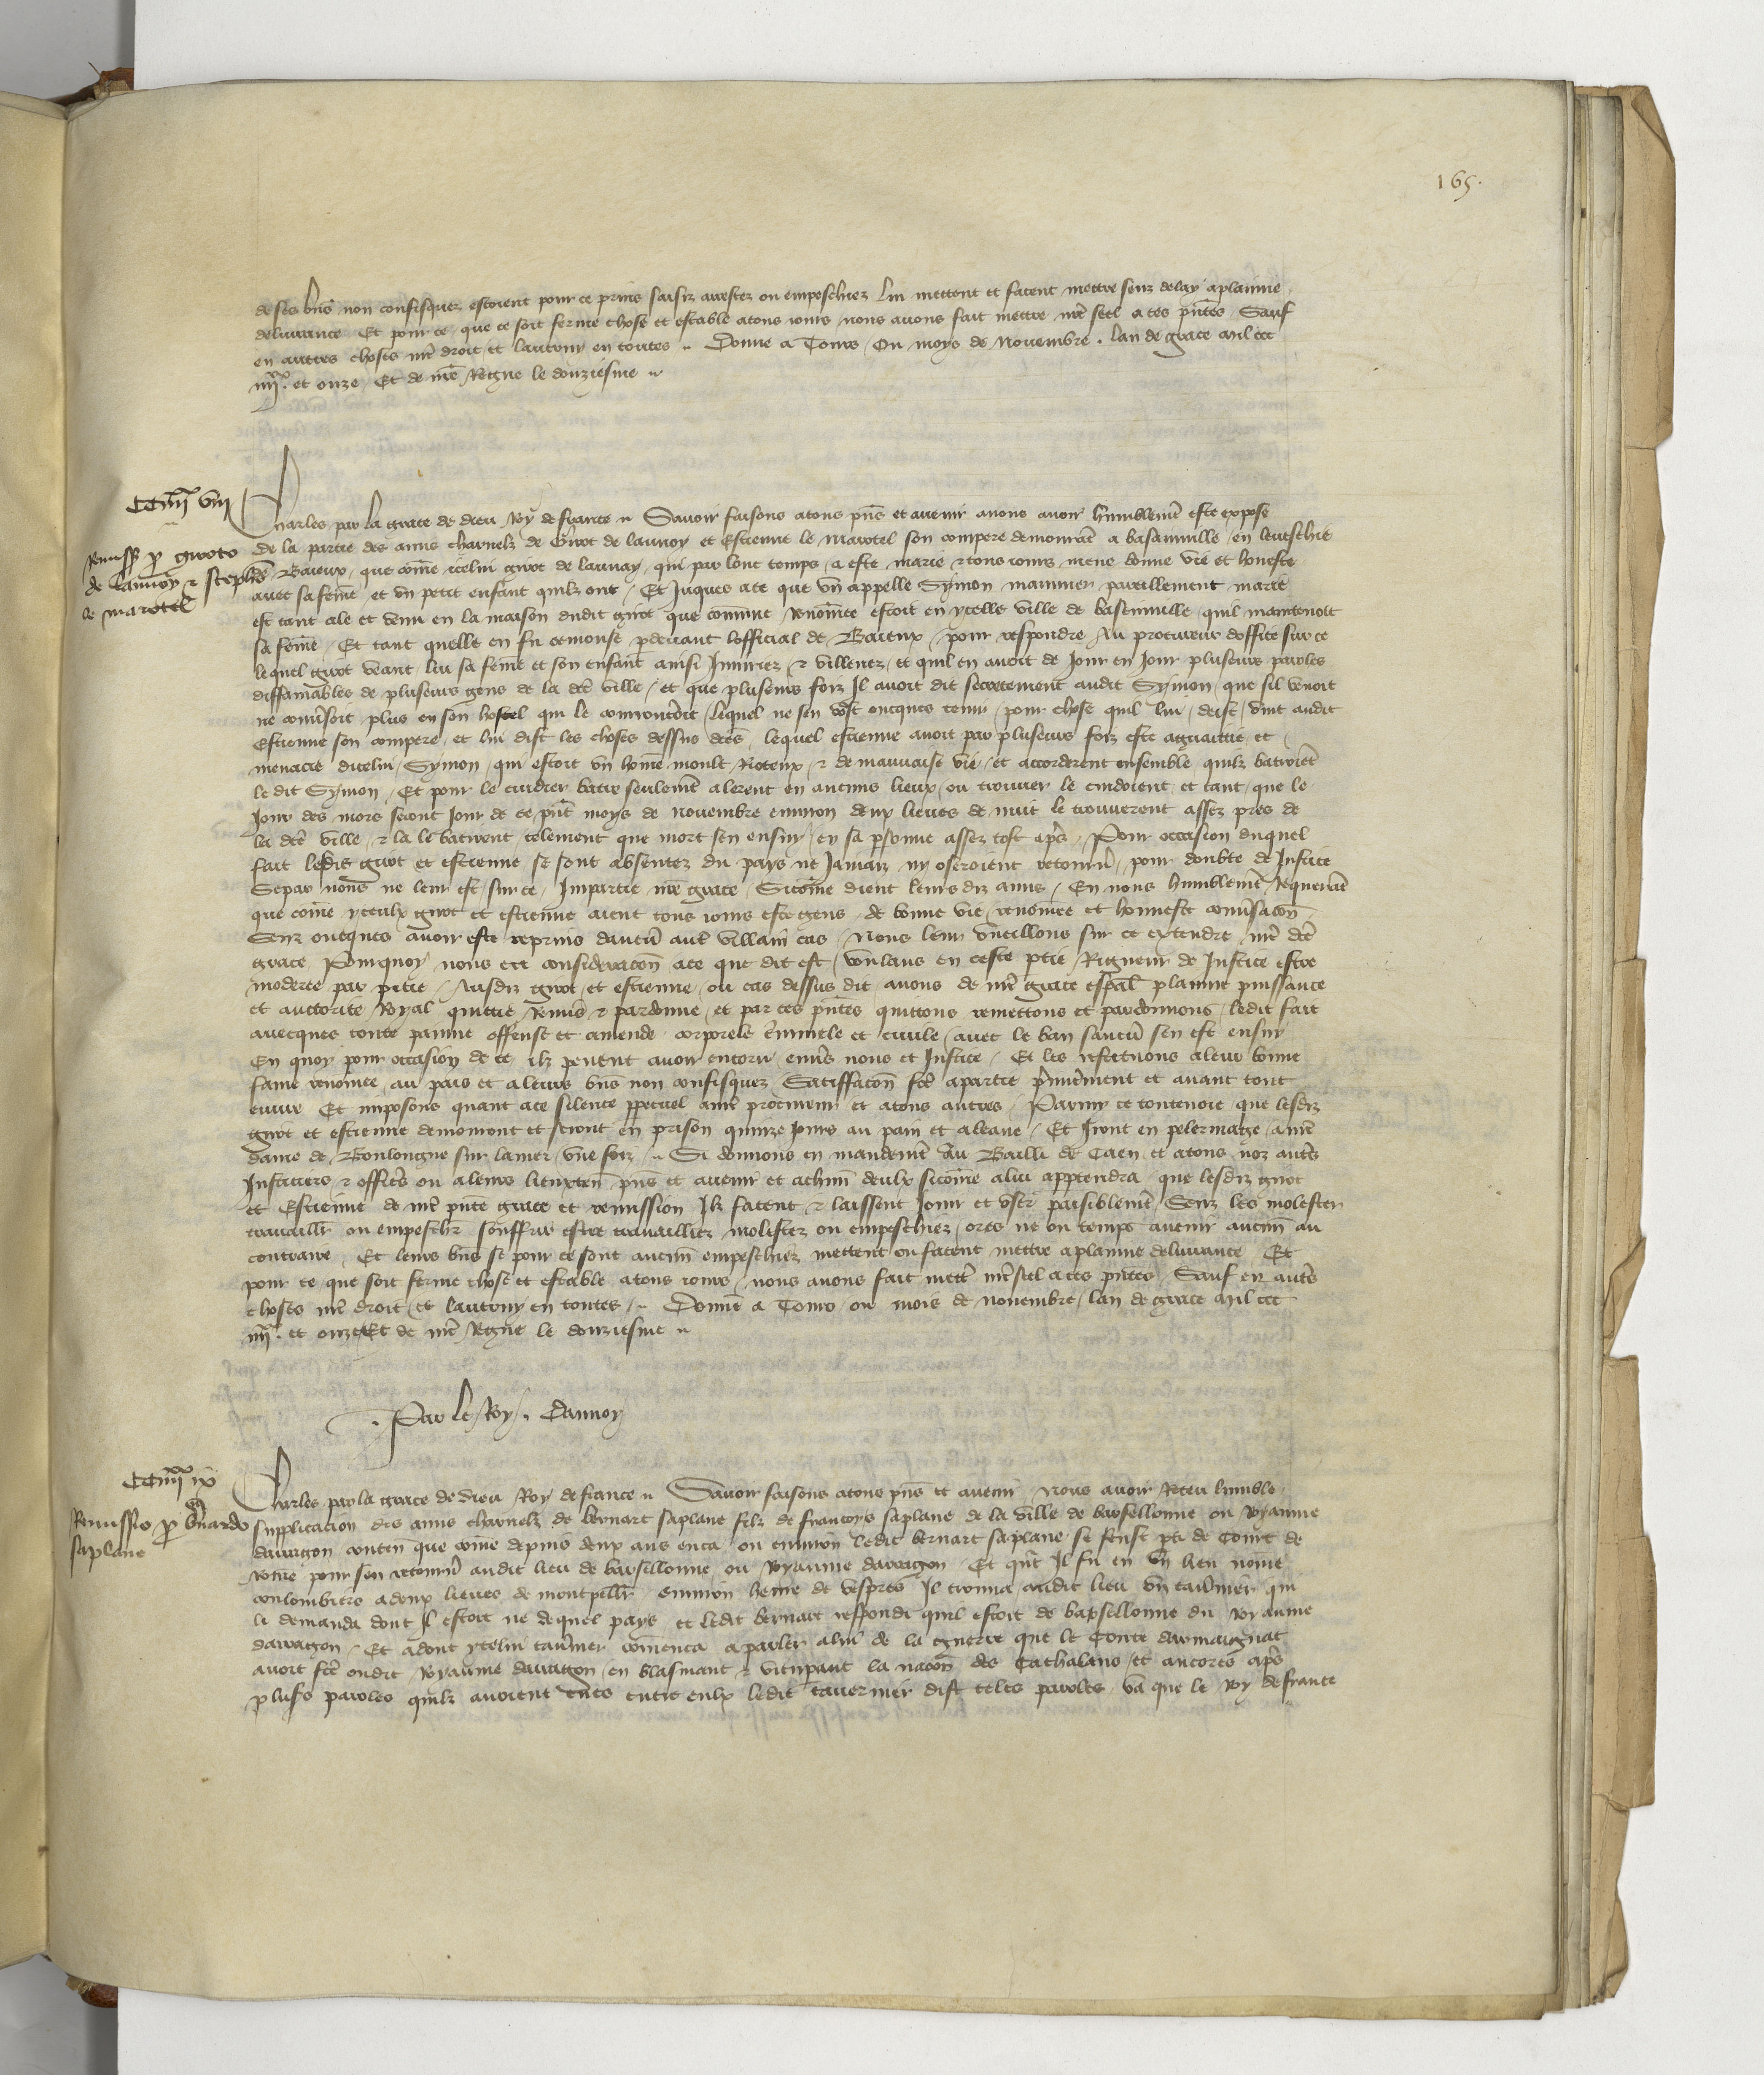 165.
de ses bn̄s non confisquez estoient pour ce prins saisiz arrestez ou empeschiez lui mettent et facent mettre senz delay a plainne
delivrance Et pour ce que ce soit ferme chose et estable a tous jours nous avons fait mettre nr̄e seel a ces pn̄tes Sauf
en autres choses nr̄e droit et lautruy en toutes Donne a Tours Ou moys de Novembre . lan de grace mil ccc
iiii xx. et onze Et de nr̄e Regne le douziesme
CCiiii xx viii
Remissio p guioto
de launoy et stephō
le marotel
Charles par la grace de dieu Roy de france Savoir faisons a tous pn̄s et avenir a nous avoir humblemēt este expose
de la partie des amis charnelz de Guiot de launoy et Estienne le Marotel son compere demourāt a basainville en leveschie
de Baieux que cōme icelui guiot de launay qui par lonc temps a este marie et tous jours mene bonne vie et honeste
avec sa fēme et un petit enfant quilz ont Et jusques a ce que un appelle Symon pareillement marie
est tant ale et venu en la maison dudit guiot que commune renōmee estoit en ycelle ville de basainville quil maintenoit
sa fēme Et tant quelle en fu cemonse p devant lofficial de Baieux pour respondre Au procureur doffice sur ce
lequel guiot veant lui sa fēme et son enfant ainsi Injuriez et villenez et quil en avoit de jour en jour pluseurs paroles
diffamables de pluseurs gens de la dc̄e ville et que pluseurs foiz Il avoit dit secretement audit Symon que sil venoit
ne cōversoit plus en son hostel qui le le quel ne sen vost oncques tenir pour chose quil lui deist vint audit
Estienne son compere et lui dist les choses dessus dc̄es lequel estienne avoit par pluseurs foiz este aguaittie et
menacie dicelui Symon qui estoit un hōme moult Roteux et de mauvaise vie et accorderent ensemble quilz batroiēt
le dit Symon Et pour le cuidier batre seulemēt alerent en aucuns lieux ou trouver le cuidoient et tant que le
jour des mors second jour de ce pn̄t moys de novembre environ deux lieues de nuit le trouverent assez pres de
la dc̄e ville et la le batirent telement que mort sen ensuy en sa p̄sonne assez tost ap̄s Pour occasion duquel
fait les diz guiot et estienne se sont absentez du pays ne jamaiz ny oseroient retourn̄ pour doubte de Justice
Se par nous ne leur est sur ce Impartie nr̄e grace Sicōme dient leurs diz amis En nous humblemēt Requerāt
que cōme yceulx guiot et estienne aient tous jours este gens de bonne vie renōmee et honneste cōversacōn
Senz oncques avoir este reprins daucū aut̄ villain cas Nous leur vueillons sur ce extendre nr̄e dc̄e
grace Pourquoy nous eu consideracōn a ce que dit est voulans en ceste p̄tie Rigueur de Justice estre
moderee par pitie Ausdiz guiot et estienne ou cas dessus dit avons de nr̄e grace esp̄al plainne puissance
et auctorite Royal quittie Remis et pardonne et par ces pn̄tes quittons remettons et pardonnons ledit fait
avecques toute painne offense et amende corporele c̄minele et civile avec le ban saucū sen est ensuy
En quoy pour occasion de ce ilz peuent avoir encoru envers nous et Justice Et les restituons a leur bonne
fame renomee au pais et a leurs bn̄s non confisquez Satisfacōn fc̄e a partie p̄mierement et avant tout
euvre Et imposons quant a ce silence p̄petuel a nr̄e procureur et a tous autres Parmy ce toutevoie que lesdiz
guiot et estienne demourront et seront en prison quinze jours au pain et a leaue Et Iront en pelerinage a nr̄e
dame de Boulongne sur la mer une foiz Si donnons en mandemēt Au Bailli de Caen et a tous noz autr̄s
Justiciers et offic̄rs ou a leurs lieuxten̄ pn̄s et avenir et a chūn deulx sicōme a lui app̄tendra que lesdiz guiot
et Estienne de nr̄e pn̄te grace et remission Ilz facent et laissent joir et user paisiblemēt Senz les molester
travaill̄r ou empesch̄r souffrir estre travailliez molestez ou empeschiez ores ne ou temps avenir aucun̄ au
contraire Et leurs bn̄s se pour ce sont aucun̄ empeschiez mettent ou facent mettre a plainne delivrance Et
pour ce que soit ferme chose et estable a tous jours nous avons fait mett̄ nr̄e seel a ces pn̄tes Sauf en autr̄s
choses nr̄e droit et lautruy en toutes Donne a Tours ou mois de novembre lan de grace mil ccc
iiii xx. et onze Et de nr̄e Regne le douziesme
. Par le Roy . Daunoy
CCiiii xx ix
Remissio p b̄nardo
saplane
Charles par la grace de dieu Roy de france Savoir faisons a tous pn̄s et avenir Nous avoir Receu humble
supplicacion des amis charnelz de bernart saplane filz de francoys saplane de la ville de barsellonne ou Royaume
darragon conten̄ que cōme depuis deux ans enca ou environ ledit bernart saplane se feust p̄ti de Court de
rome pour sen retourn̄ audit lieu de barsillonne ou Royaume darragon Et qn̄t Il fu en un lieu nōme
coulombiers a deux lieues de montpell̄r environ heure de vespres Il trouva audit lieu un tav̄nier qui
li demanda dont il estoit ne de quel pays et ledit bernart respondi quil estoit de barsellonne du Royaume
darragon Et adonc ycelui tav̄nier cōmenca a parler a lui de la guerre que le Conte darmaignac
avoit fc̄e oudit Royaume darragon en blasmant et vitup̄ant la nacōn des Cathalans et ancores ap̄s
plus̄s paroles quilz avoient eues entre eulx ledit tavernier dist teles paroles va que le Roy de france